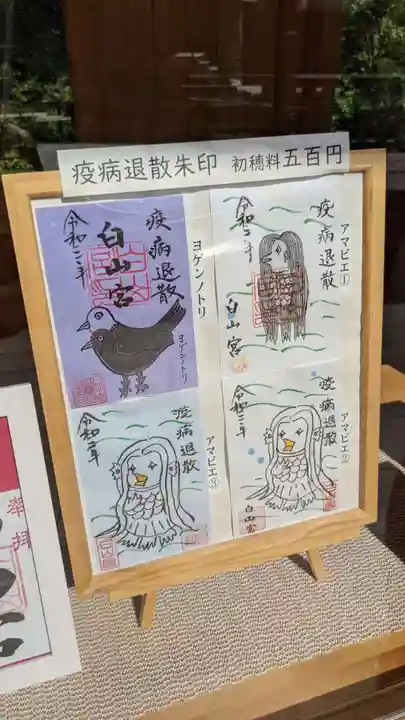 疫病退散朱印 初穂料 五百円
疫病退散
白山宮
令和二年
ヨゲンノトリ
ヨゲンノトリ
アマビエ①
疫病退散
令和二年
白山宮
アマビエ②
疫病退散
令和二年
白山宮
アマビエ③
疫病退散
令和二年
奉拝
宮